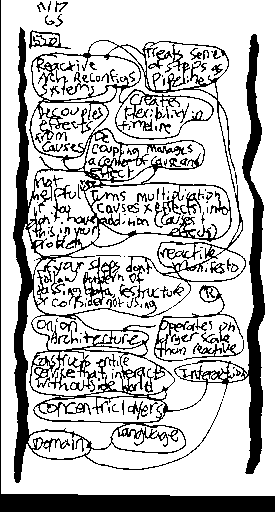 Reactive
Arch Reconfigs
Systems
Treats series
of steps as
Pipeline
Decouples
effects
from
Causes
Creates
flexibility in
timeline
De
coupling manages
a center of cause and
effect
Not
helpful
if you
don't have
this in your
problem
Turns multiplication
(causes x effects) into
addition (causes
effects)
reactive
manifesto
If your steps don't
follow pattern of
passing data, restructure
or consider not using
Onion
Architecture
Operates on
larger scale
than reactive
constructs entire
service that interacts
with outside world
Interaction
concentric layers
Domain
Language